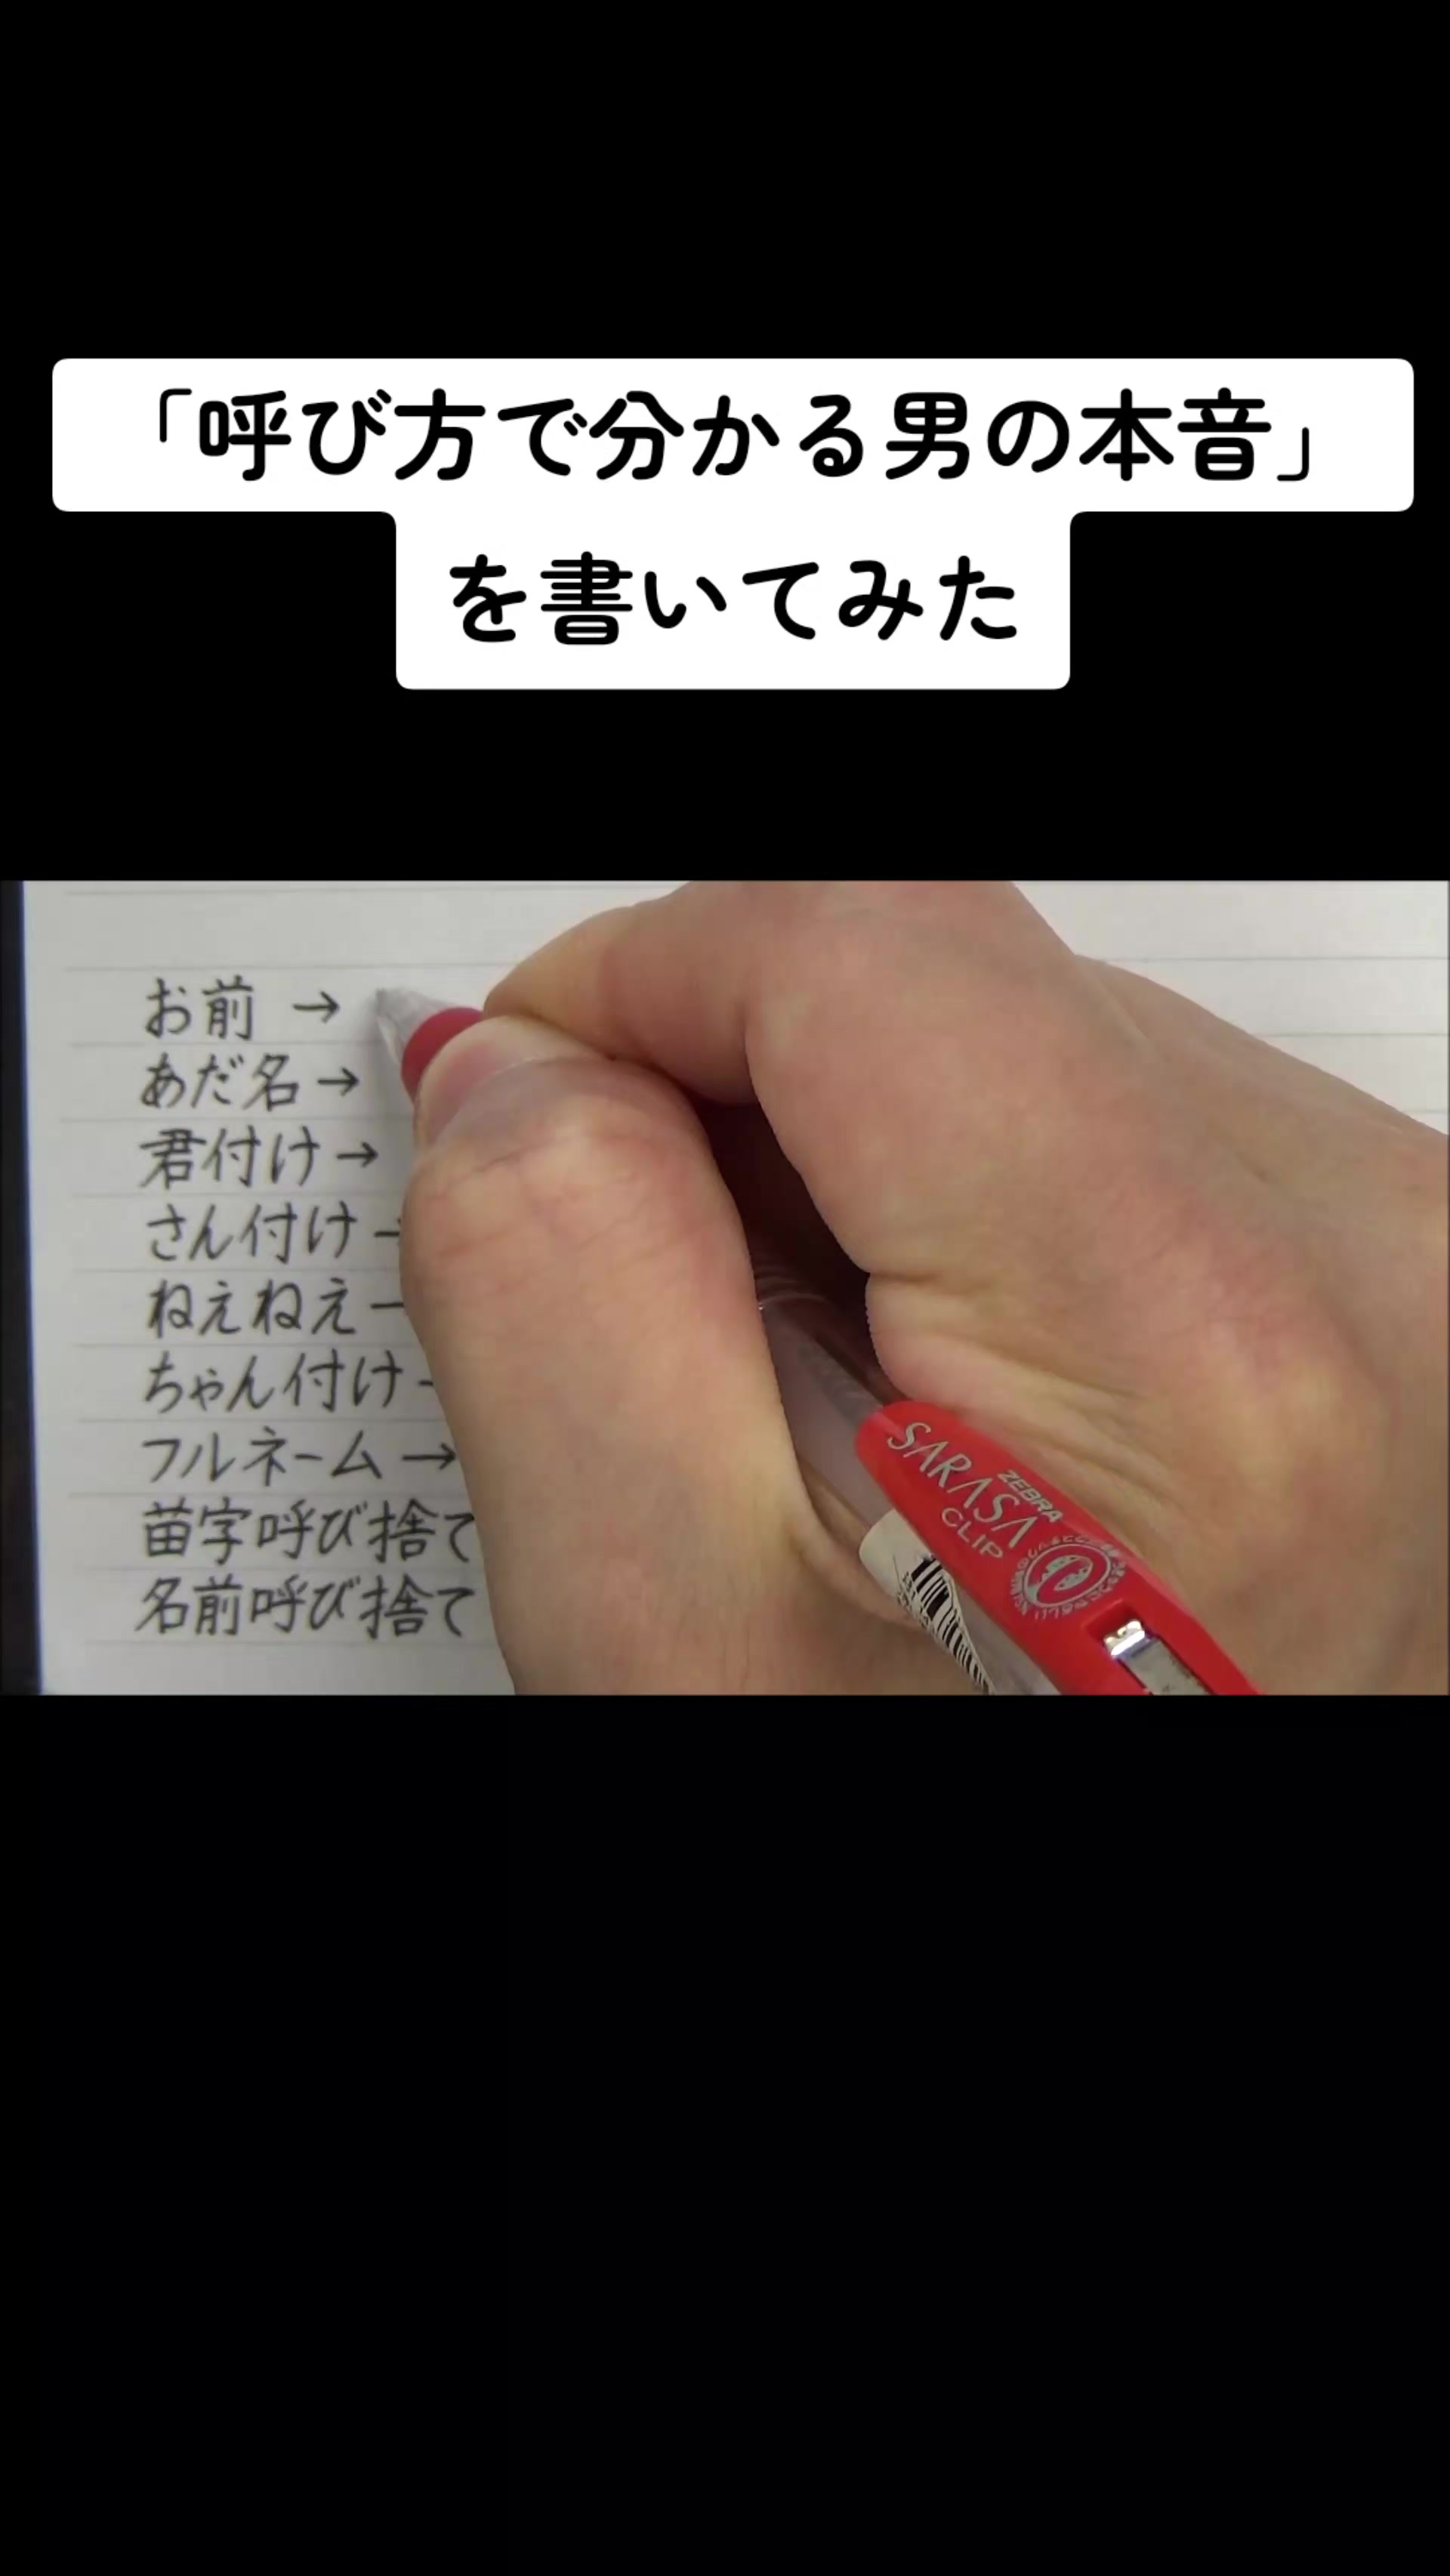 「呼び方で分かる男の本音」
を書いてみた
お前 →
あだ名 →
君付け →
さん付け -
ねえねえ ー
ちゃん付け -
フルネーム →
苗字呼び捨て
名前呼び捨て
SARASA
ZEBRA
CLIP